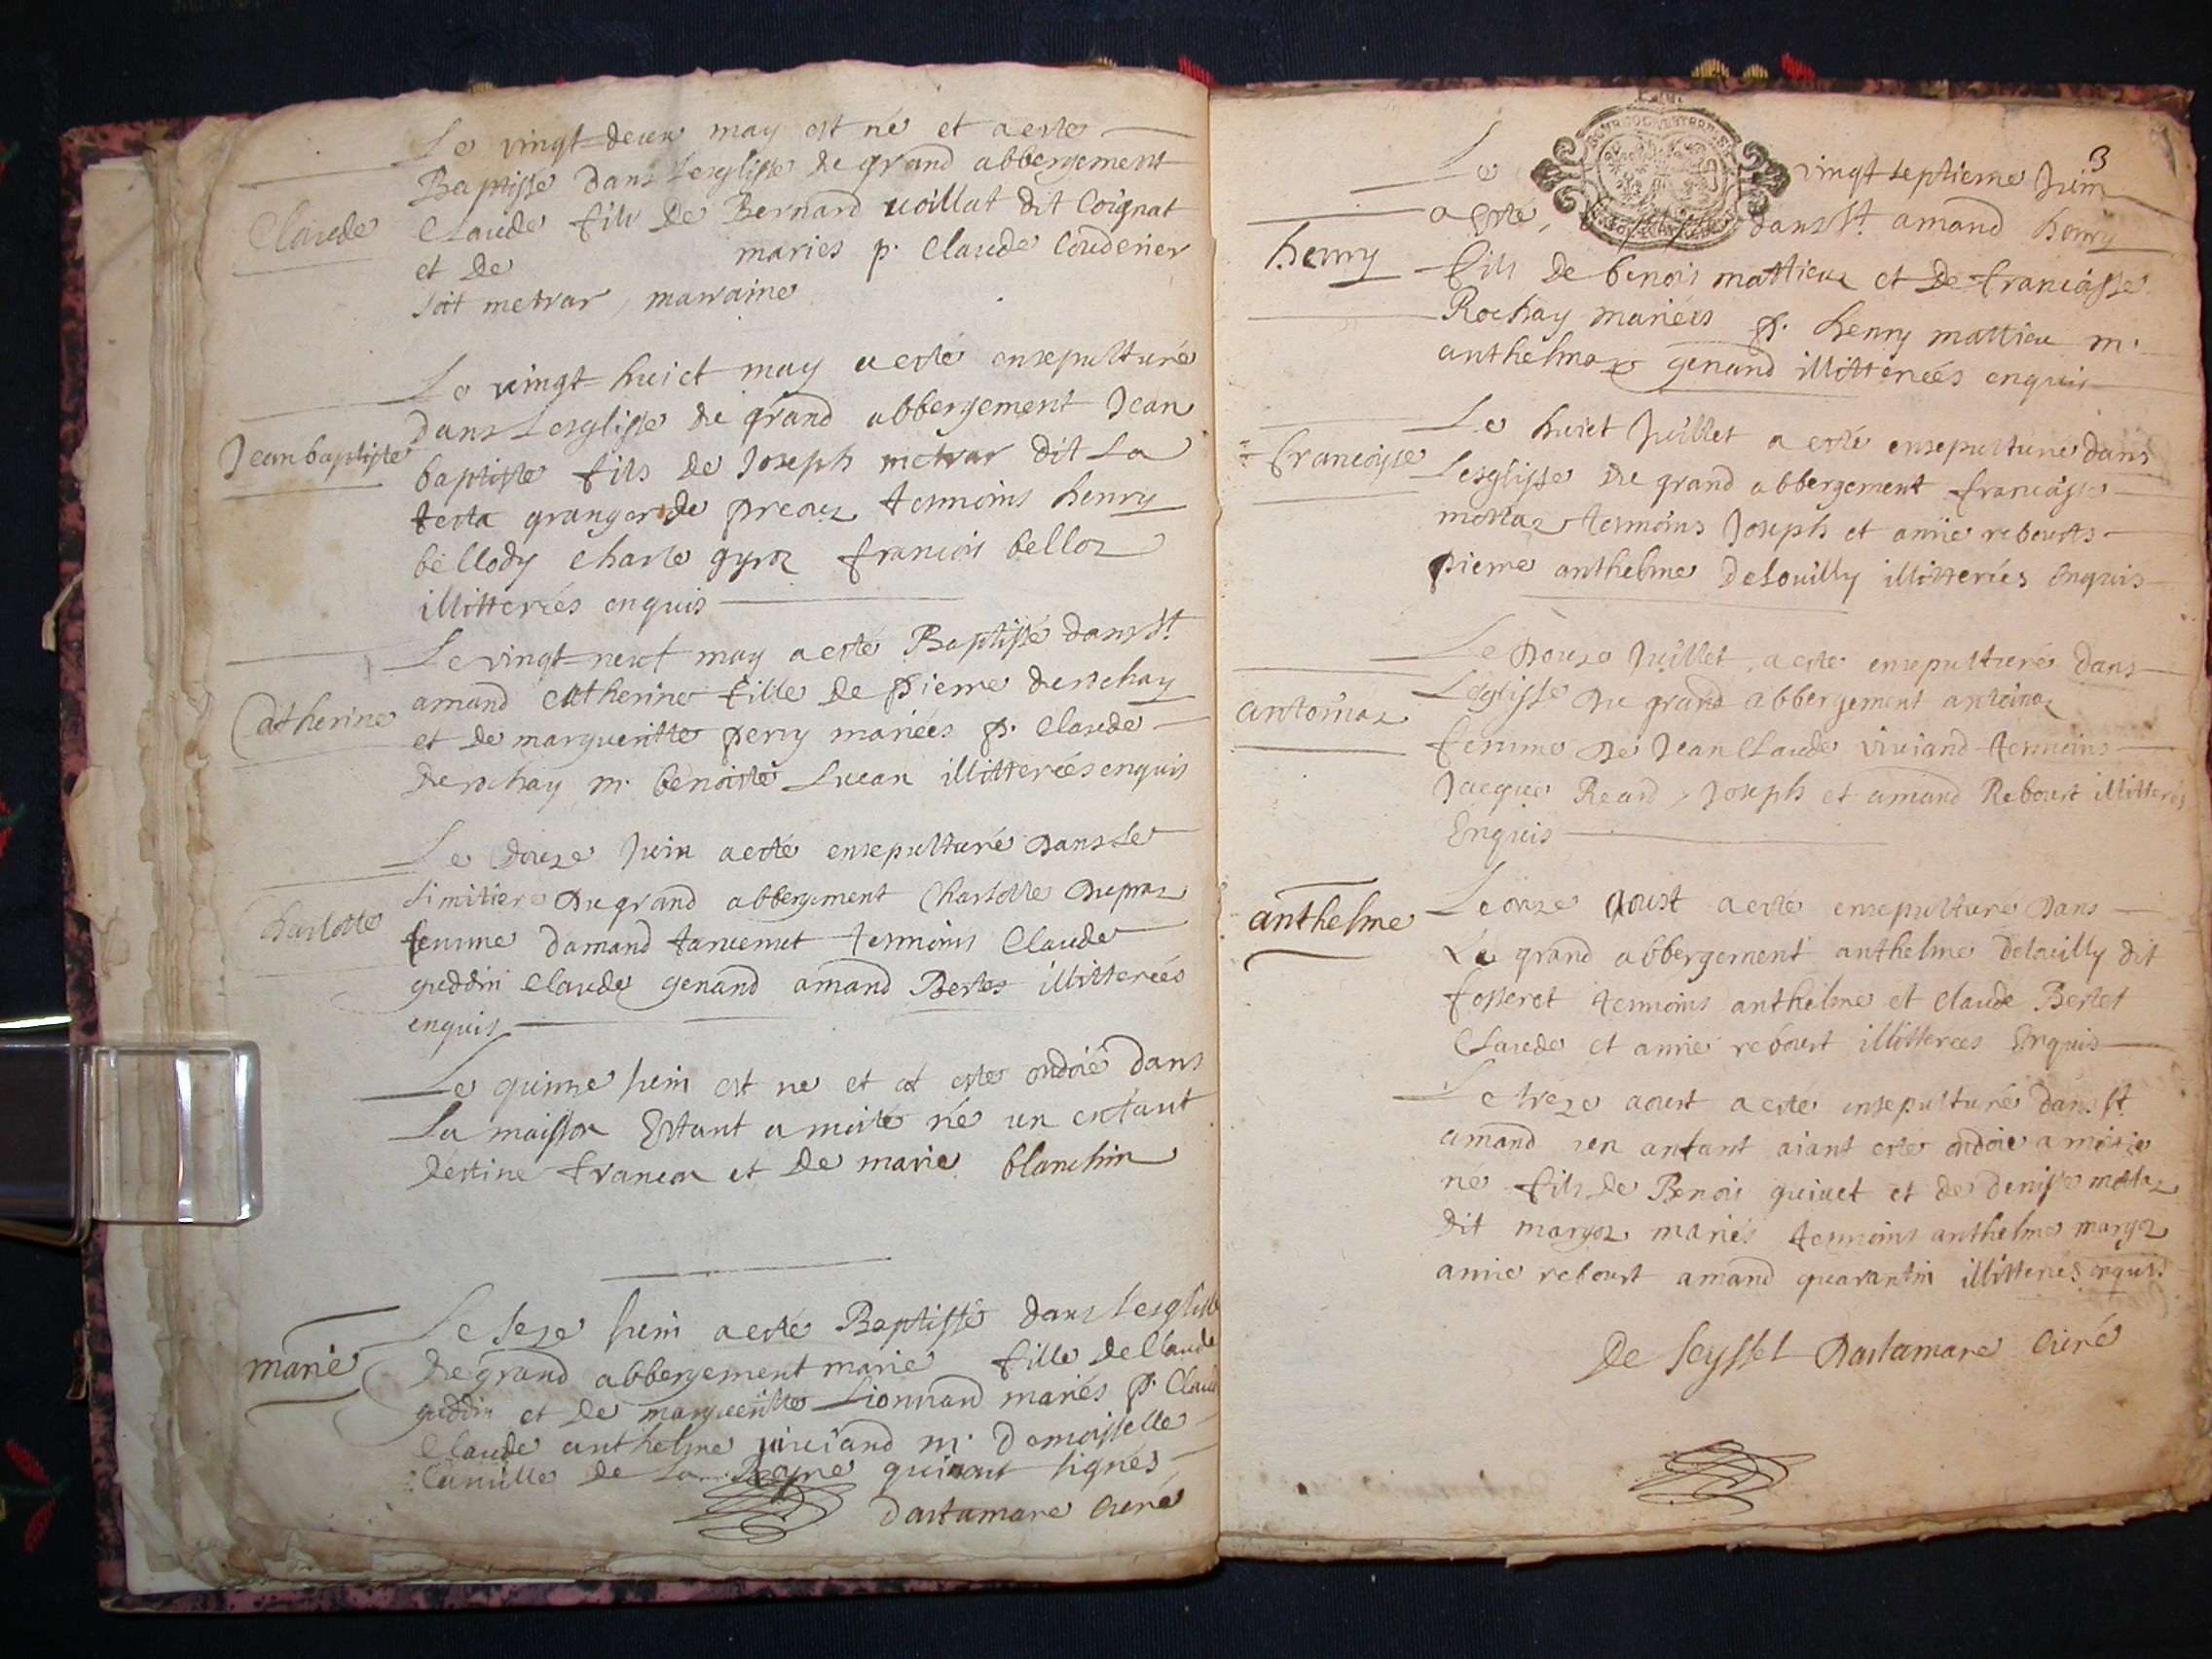 Le vingt-deux may est né et a esté
Baptissé dans Lesglisse de grand abbergement
Claude
Claude fils de Bernard uoillat dit Coignat
et de mariés p. Claude Couderier
soit metrar, marraine
Le vingt-huict may a esté ensepulturé
dans Lesglisse de grand abbergement Jean
Jean baptiste
baptiste fils de Joseph metrar dit La
testa granger de preoux tesmoins henry
bellody charle gyroz francois belloz
illitterés enquis
Le vingt-neuf may a esté Baptissé dans St
Catherine
amand Catherine fille de pierre derochay
et de margueritte perry mariées p. Claude
derochay m. benoiste Lucan illitterées enquis
Le douze Juin a esté ensepulturé dans Le
simitiere du grand abbergement Charlotte dupraz
Charlotte
femme damand tarvernet tesmoins Claude
guddin Claude genand amand Bertet illitterées
enquis
Le quinze Juin est né et a esté ondoié dans
La maisson Estant a moité né un enfant
destine francon et de marie blanchin
Le seze Juin a esté Baptissé dans Lesglisse
marie
de grand abbergement marie fille de Claude
guddin et de margueritte Lionnard mariés p. Claude
Claude anthelme uiuiand m. Demoisselle
Camille de La qui ont signés
dastamare Curé
3
Le vingt septieme Juin
a esté, baptissé dans St. amand henry
henry
fils de benois mattieu et de francoisse
Rochay mariéés p. henry mattieu m.
anthelmaz genand illitterées enquis
Le huict Juillet a esté ensepulturé dans
francoyse
Lesglisse de grand abbergement francoisse
mottaz tesmoins Joseph et anne rebourts
pierre anthelme Delouilly illitterées Enquis
Le Douze Juillet a esté ensepulturé dans
Lesglisse du grand abbergement antoinaz
antoinaz
femme de Jean Claude viuiand tesmoins
Jacque Reard, Joseph et amand Rebourt illitterés
Enquis
anthelme
Le onze Aoust a esté ensepulturé dans
Le grand abbergement anthelme Delouilly dit
fosseret tesmoins anthelme et Claude Bertet
Claude et anne rebourt illitterées Enquis
Le treze aoust a esté ensepulturé dans St
amand un anfant aiant esté ondoié a moitié
né fils de Benois quiuet et de denisse mottaz
dit margoz mariés tesmoins anthelme margoz
anne rebourt amand quarantin illitterés enquis
De Seyssel Dastamare Curé